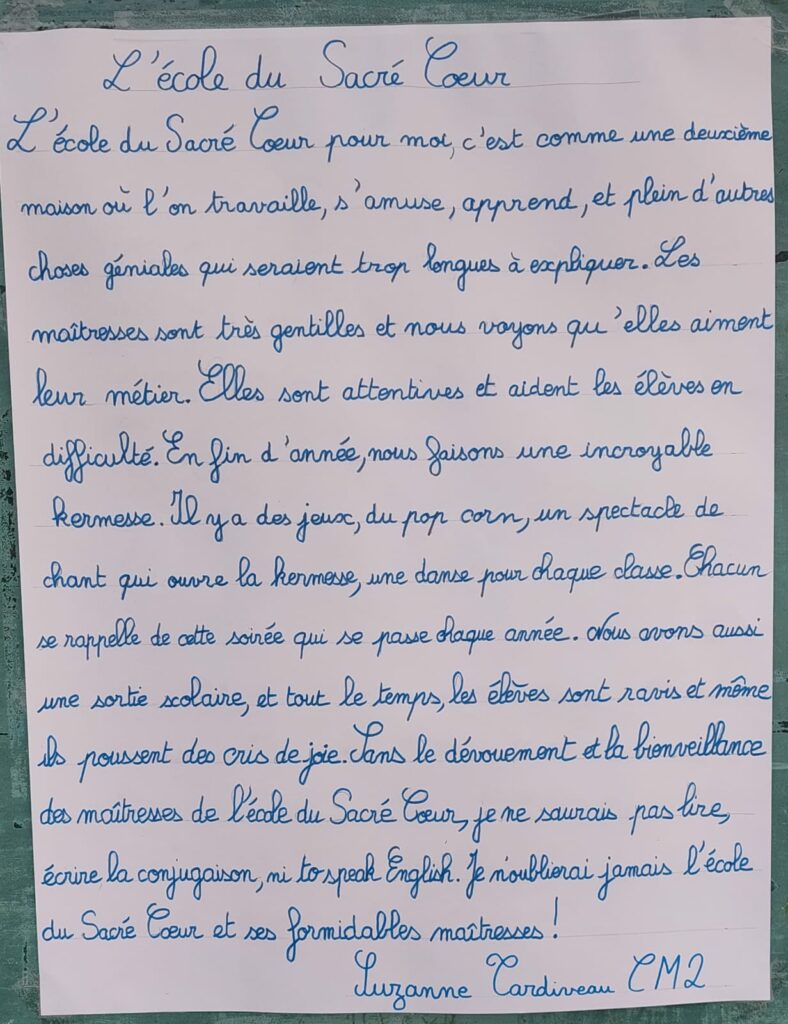 L'école du Sacré Cœur
L'école du Sacré Cœur pour moi, c'est comme une deuxième
maison où l'on travaille, s'amuse, apprend, et plein d'autres
choses géniales qui seraient trop longues à expliquer. Les
maîtresses sont très gentilles et nous voyons qu'elles aiment
leur métier. Elles sont attentives et aident les élèves en
difficulté. En fin d'année, nous faisons une incroyable
kermesse. Il y a des jeux, du pop corn, un spectacle de
chant qui ouvre la kermesse, une danse pour chaque classe. Chacun
se rappelle de cette soirée qui se passe chaque année. Nous avons aussi
une sortie scolaire, et tout le temps, les élèves sont ravis et même
ils poussent des cris de joie. Sans le dévouement et la bienveillance
des maîtresses de l'école du Sacré Cœur, je ne saurais pas lire,
écrire la conjugaison, ni to speak English. Je n'oublierai jamais l'école
du Sacré Cœur et ses formidables maîtresses !
Suzanne Tardiveau CM2